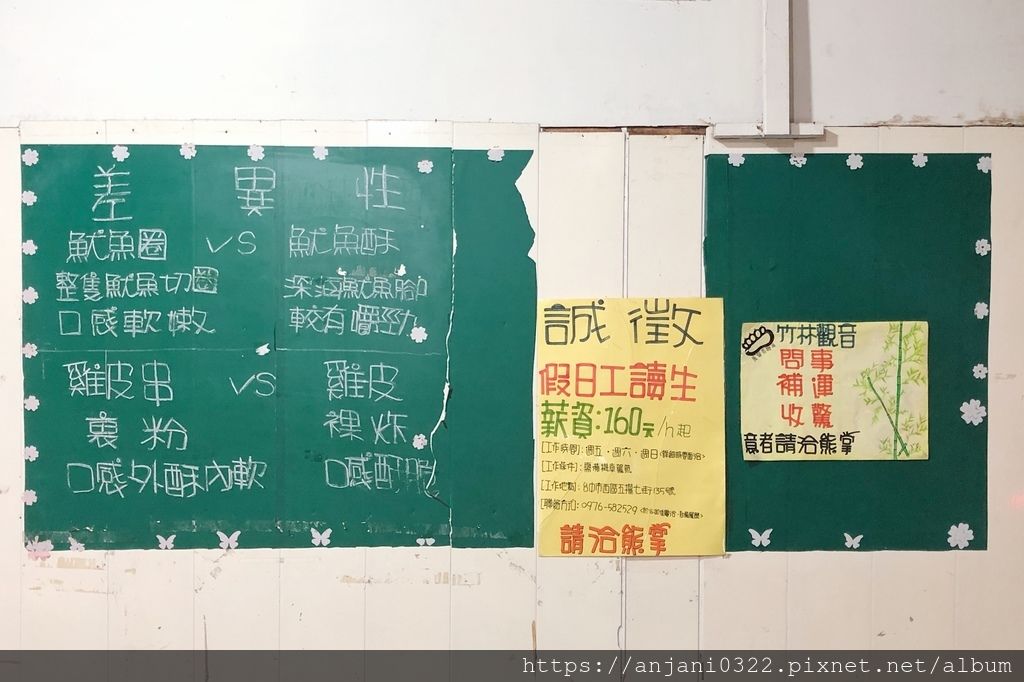 差異性
魷魚圈 vs 魷魚酥
整隻魷魚切圈
深海魷魚腳
口感軟嫩
較有嚼勁
雞皮串 vs 雞皮
裹粉
裸炸
口感外酥內軟
口感酥脆
誠徵
假日工讀生
薪資:160元/h起
[工作時間]:週五、週六、週日
[工作條件]:需備機車駕照
[工作地點]:台中市西區五權七街135號
[聯絡方式]:0976-582529
請洽熊掌
竹林觀音
問事
補運
收驚
意者請洽熊掌
https://anjani0322.pixnet.net/album